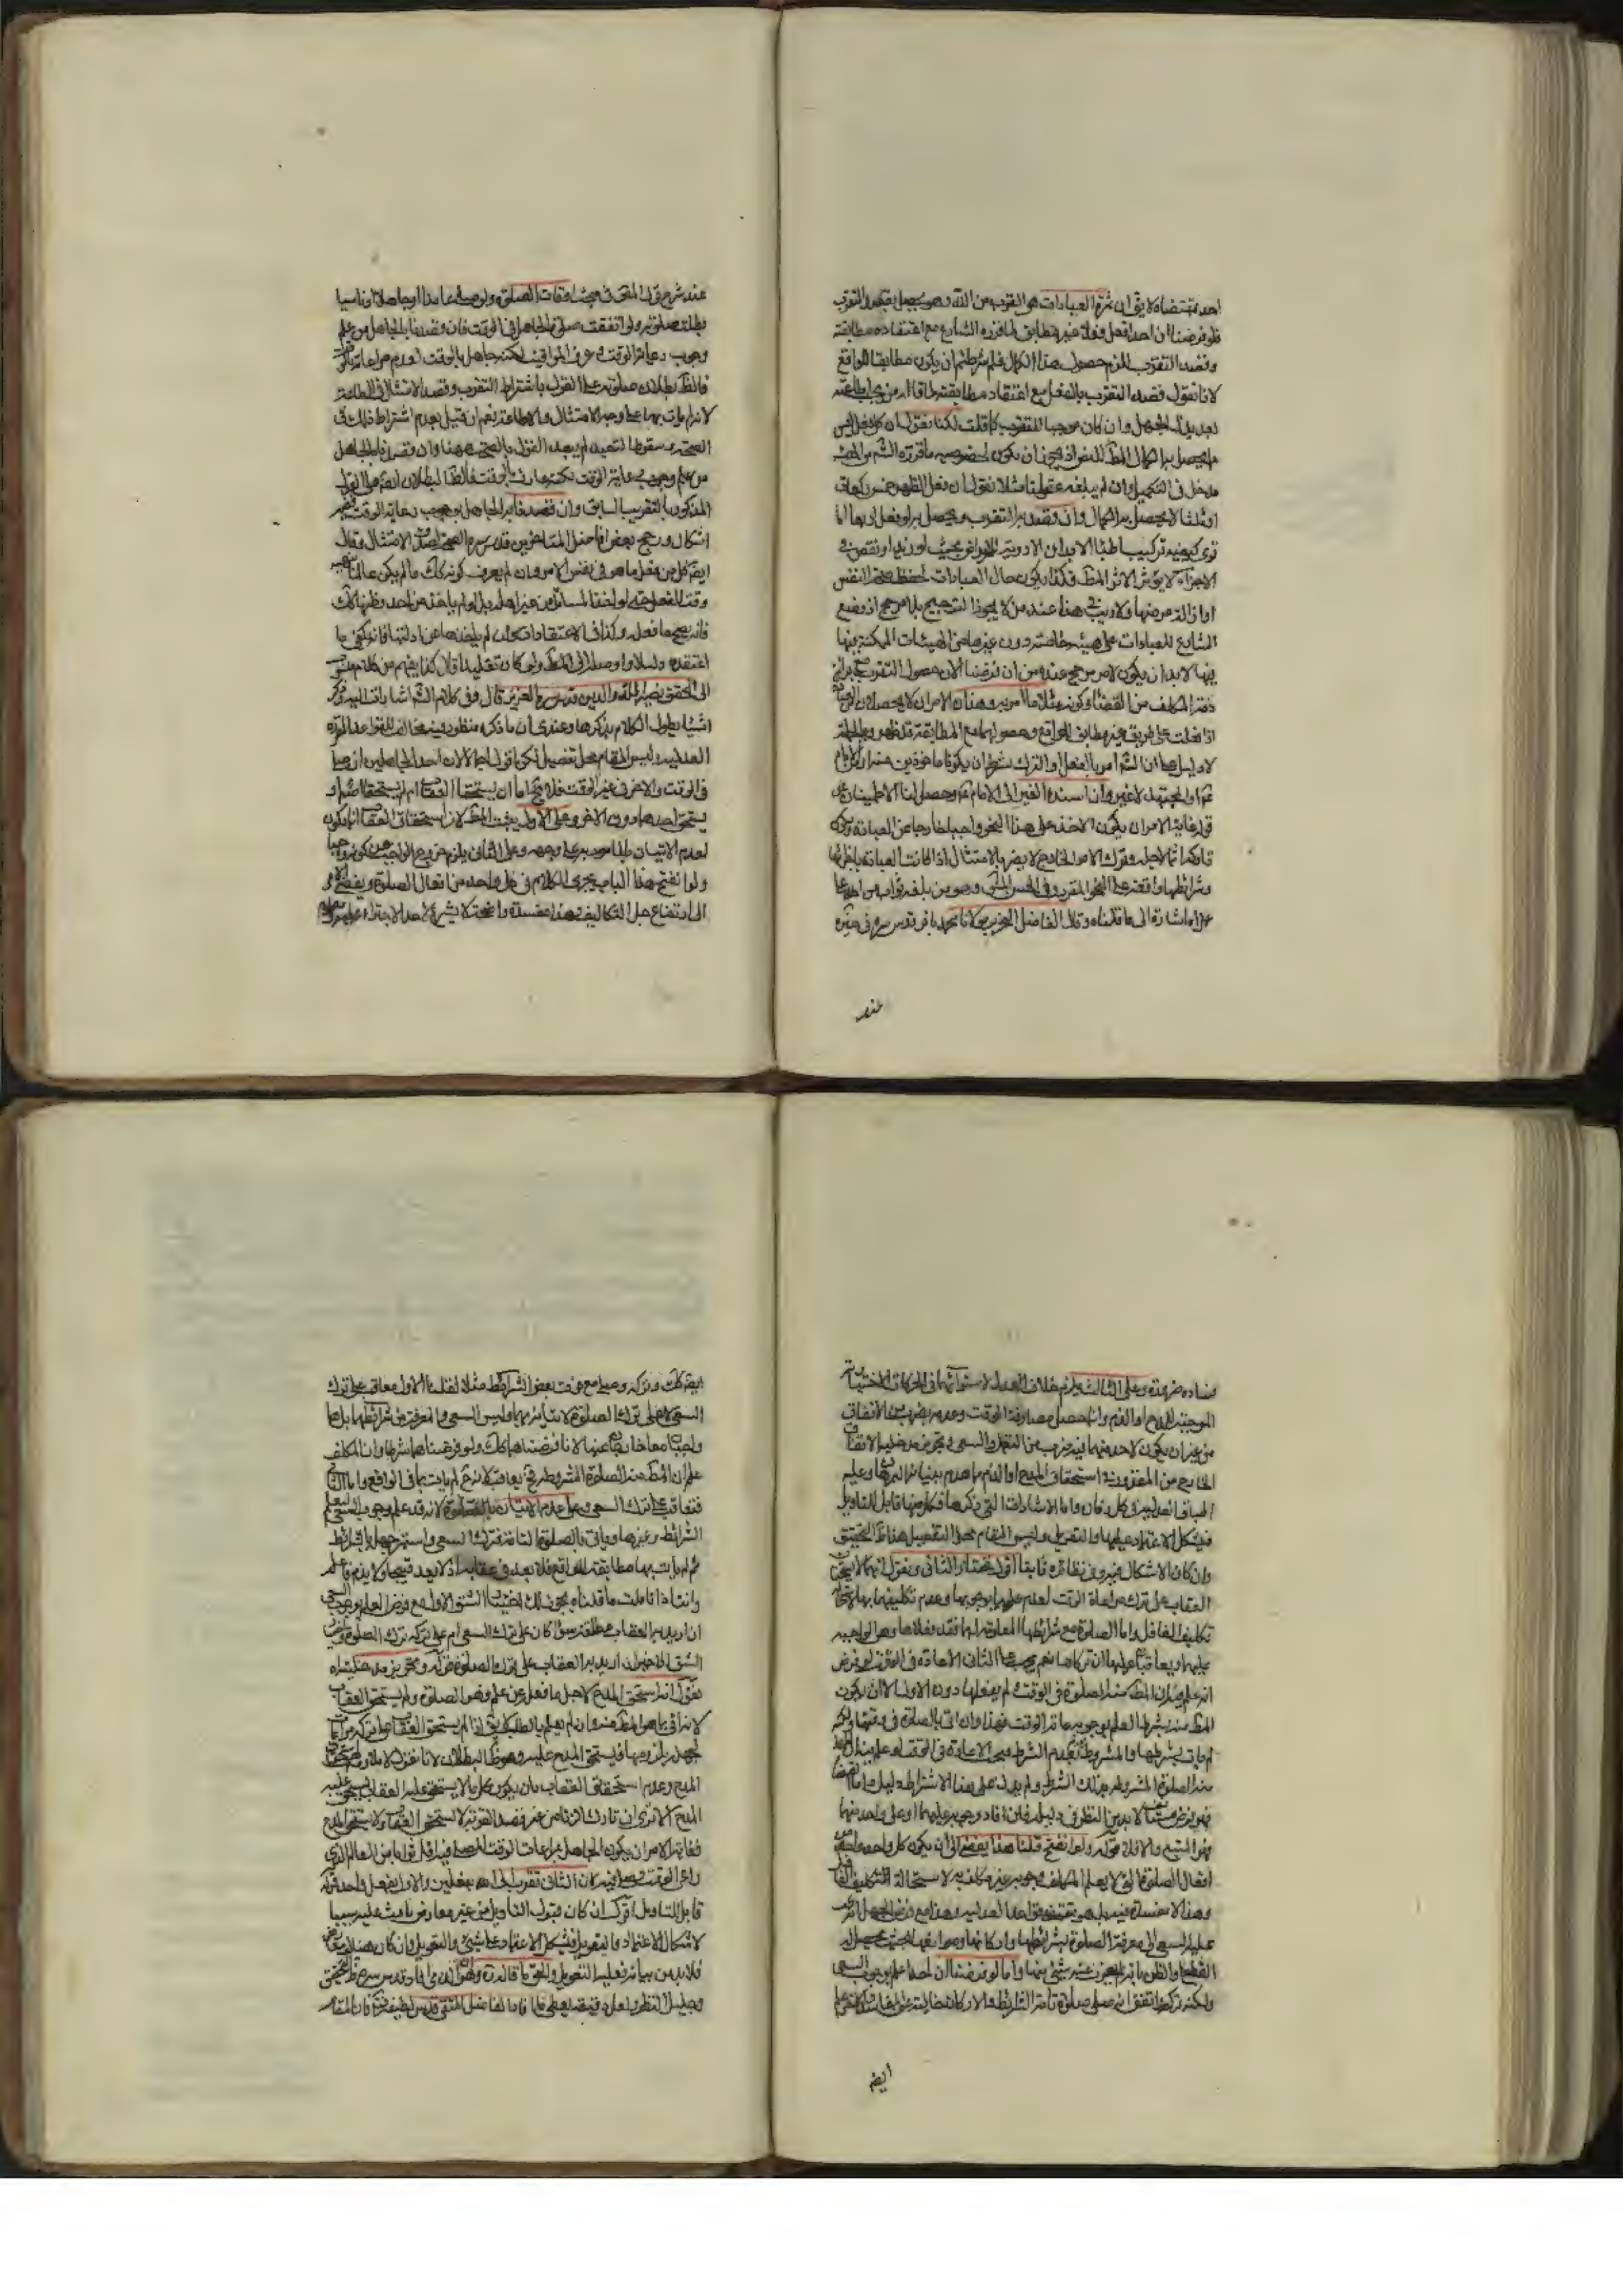 احد مقتضاه لا يق ان ثمرة العبادات هو القرب من الله وهو يحصل بقصد التقرب
فلو فرضنا ان احدا فعل فعلا غير مطابق لما قرره الشارع مع اعتقاده مطابقته
وقصد التقرب لزم حصول هذا الكمال فلم شرطتم ان يكون مطابقا للواقع
لانا نقول قصد التقرب بالفعل مع اعتقاد مطابقته لما قاله من يجب اطاعته
وان كان موجبا للتقرب كما قلت لكنا نقول ان كل فعل ليس
مما يحصل به الكمال المط للنفس ان يكون لخصوصية ما قرره الشم من الهيئة
مدخل في التكميل وان لم يبلغه عقولنا مثلا نقول ان فعل الظهر خمس ركعات
او ثلثا لا يحصل به الكمال وان قصد به التقرب ويحصل به لو فعل اربعا اما
ترى كيفية تركيب اطباء الابدان الادوية للامراض بحيث لو زيد او نقص في
الاجزاء لا يؤثر الاثر المط فكذا يكون حال العبادات لحفظ صحة النفس
او ازالة مرضها ولا ريب في هذا عند من لا يجوز الترجيح بلا مرجح اذ وضع
الشارع للعبادات على هيئة خاصة دون غيرها من الهيئات الممكنة فيها
فيها لابد ان يكون لامر مرجح عنده ومن ان فرضنا الان حصول التقرب
ذمة المكلف من القضاء وكونه ممتثلا لما امر به وهذان الامران لا يحصلان
اذا فعلت على طريق غير مطابق للواقع وحصولهما مع المطابقة قد ظهر
لا دليل على ان الشم امر بالفعل او الترك بشرط ان يكونا ماخوذين من
او المجتهد لا غير وان اسنده الغير الى الامام وحصل لنا الاطمينان
قوله غاية الامر ان يكون الاخذ على هذا النحو واجبا خارجا عن العبادة
تاركه اثما لاجله وترك الامر الخارج لا يضر بالامتثال اذا كانت العبادة
وشرائطها واقعة على النحو المقرر وفي الحسن
عمل اشارة الى ما قلناه وقال الفاضل مولانا محمد باقر قدس سره في
عند
عند شرح قول المحقق في مبحث اوقات الصلوة ولو صلى عامدا او جاهلا او ناسيا
بطلت صلوته ولو اتفقت صلوة الجاهل في الوقت فان قصدنا بالجاهل من علم
وجوب رعاية الوقت وعرف المواقيت لكنه جاهل بالوقت لعدم مراعاته
فالظ بطلان صلوته على القول باشتراط التقرب وقصد الامتثال في الطاعة
لانه لم يات بها على وجه الامتثال والاطاعة نعم ان قيل بعدم اشتراط ذلك في
الصحة وسقوط التعبد لم يبعد القول بالصحة ههنا وان قصدنا بالجاهل
من علم وجوب رعاية الوقت لكنه الوقت فالظ البطلان ايضا على القول
المذكور بالتقريب السابق وان قصدنا به الجاهل بوجوب رعاية الوقت ففيه
اشكال ورجح بعض افاضل المتاخرين قدس سره الصحة لصدق الامتثال وقال
ايضا كل من فعل ما هو في نفس الامر وان لم يعرف كونه كذلك ما لم يكن عالما
وقت الفعل حتى لو اخذ المسائل من غير اهله بل لو لم ياخذ من احد وظنها كذلك
فانه يصح ما فعله وكذا في الاعتقادات وان لم ياخذها عن ادلتها فانه يكفي ما
اعتقده دليلا واوصله الى المط ولو كان تقليدا قال كذا يفهم من كلام منسوب
الى المحقق نصير الملة والدين قدس سره العزيز قال وفي كلام الشم اشارات اليه وذكر
اشياء يطول الكلام بذكرها وعندي ان ما ذكره منظور فيه مخالف للقواعد المقررة
العدلية وليس المقام محل تفصيل لكن اقول اجمالا لان احد الجاهلين ان صلى
في الوقت والاخر في غير الوقت فلا يخ اما ان يستحقا العقاب ام لم يستحقا اصلا او
يستحق احدهما دون الاخر وعلى الاول يثبت المط لان استحقاق العقاب انما يكون
لعدم الاتيان بالمامور به على وجهه وعلى الثاني يلزم خروج الواجب عن كونه واجبا
ولو انفتح هذا الباب يجري الكلام في كل واحد من افعال الصلوة ويفضي الامر
الى ارتفاع جل التكاليف وهذا مفسدة واضحة لا يشرع لاحد الاجتراء عليه
فساده ضرورة وعلى الثالث يلزم خلاف العدل لاستوائهما في الحركات الاختيارية
الموجبة للمدح او الذم وانما حصل مصادفة الوقت وعدمه بضرب من الاتفاق
من غير ان يكون لاحد منهما فيه ضرب من التعمل والسعي وتجويز مدخلية الاتفاق
الخارج عن المقدور في استحقاق المدح او الذم مما هدم بنيانه البرهان وعليه
اطباق العدلية في كل زمان واما الاشارات التي ذكرها فكل منها قابل للتاويل
فيشكل الاعتماد عليها والتعويل وليس المقام محل التفصيل هذا التحقيق
وان كان الاشكال فيه وفي نظائره ثابتا اقول نختار الثاني ونقول انهما لا يستحقان
العقاب على ترك مراعاة الوقت لعدم علمهما بوجوبها وعدم تكليفهما بها لاستحالة
تكليف الغافل واما الصلوة مع شرائطها المعلومة لهما فقد فعلاها وهو الواجب
عليهما ويعاقبا عليها ان تركاها نعم يجب على الثاني الاعادة في الوقت لو فرض
انه علم بان المط منه الصلوة في الوقت ولم يفعلها دون الاول الا ان يكون
المط منه بشرط العلم بوجوب مراعاة الوقت فهذا وان اتى بالصلوة في وقتها لكنه
لم يات بشرطها والمشروط ينعدم بعدم الشرط فيجب الاعادة في الوقت لو علم
هذا الصلوة المشروطة بذلك الشرط ولم يدل على هذا الاشتراط دليل واما القضاء
فهو بفرض مستانف لابد من النظر في دليله فان افاد وجوبه عليهما او على واحد منهما
فهو المتبع والا فلا قوله ولو انفتح قلنا هذا يفضي الى ان يكون كل واحد واحد من
افعال الصلوة التي لا يعلم المكلف وجوبه غير مكلف به لاستحالة التكليف
وهذا لا مفسدة فيه بل هو مقتضى قواعد العدلية وهذا مع فرض الجهل
عليه السعي الى معرفة الصلوة بشرائطها واركانها وموانعها بحيث يحصل له
القطع او الظن بانه لم يعزب عنه شئ منها واما لو فرضنا ان احدا علم بوجوب السعي
ولكنه تركه واتفق انه صلى صلوة تامة الشرائط والاركان خالية عن
ايضا
ايضا كذلك وتركه وصلى مع فوت بعض الشرائط مثلا لقلنا الاول معاقب على ترك
السعي لا على ترك الصلوة لاتيانه بها وليس السعي والمعرفة من شرائطها بل هما
واجبان خارجان عنها لانا فرضناهما كذلك ولو فرضناهما شرطا وان المكلف
علم ان المط منه الصلوة المشروطة فح يعاقب لانه لم يات بها في الواقع واما الثاني
فنعاقب على ترك السعي وعلى عدم الاتيان بالصلوة لانه قد علم وجوب السعي ليعلم
الشرائط وغيرها وياتي بالصلوة التامة فترك السعي واستمر جهله بالشرائط
ثم لم يات بها مطابقة للواقع فلا بعد في عقابه اذ لا يعد قبيحا ولا يذم فاعله
وانت اذا تاملت ما قلناه يجوز لك اختيار الشق الاول مع فرض العلم بوجوب السعي
ان اريد به العقاب مطلقا سواء كان على ترك السعي ام على تركه وترك الصلوة
الشق الاخير ان اريد به العقاب على ترك الصلوة
نقول انه استحق المدح لاجل ما فعله عن علم وهو الصلوة ولم يستحق العقاب
لانه اتى بما هو المط منه وان لم يعلم بالطلب لا يق اذا لم يستحق العقاب على تركه مراعاة
لجهله بلزومها فيستحق المدح عليه وهو ظ البطلان لانا نمنع الملازمة بين استحقاق
المدح وعدم استحقاق العقاب بان يكون كل ما لا يستحق عليه العقاب يستحق عليه
المدح الا ترى ان تارك الزنا من غير قصد القربة لا يستحق العقاب ولا يستحق المدح
فغاية الامر ان يكون الجاهل بمراعات الوقت المصلي فيه اقل ثوابا من العالم الذي
راعى الوقت وصلى فيه لان الثاني تقرب الى الله بفعلين والاول بفعل واحد قوله
قابل للتاويل اقول ان كان قبول التاويل من غير معارض باعث عليه سببا
لاشكال الاعتماد والتعويل فيشكل الاعتماد على شئ والتعويل وان كان هناك معارض
فلابد من بيانه فعليه التعويل والحق ما قاله قدس سره
وجليل النظر ولعل دقيقه يعطي ما افاد الفاضل المتقي قدس لطيفه فان المقام